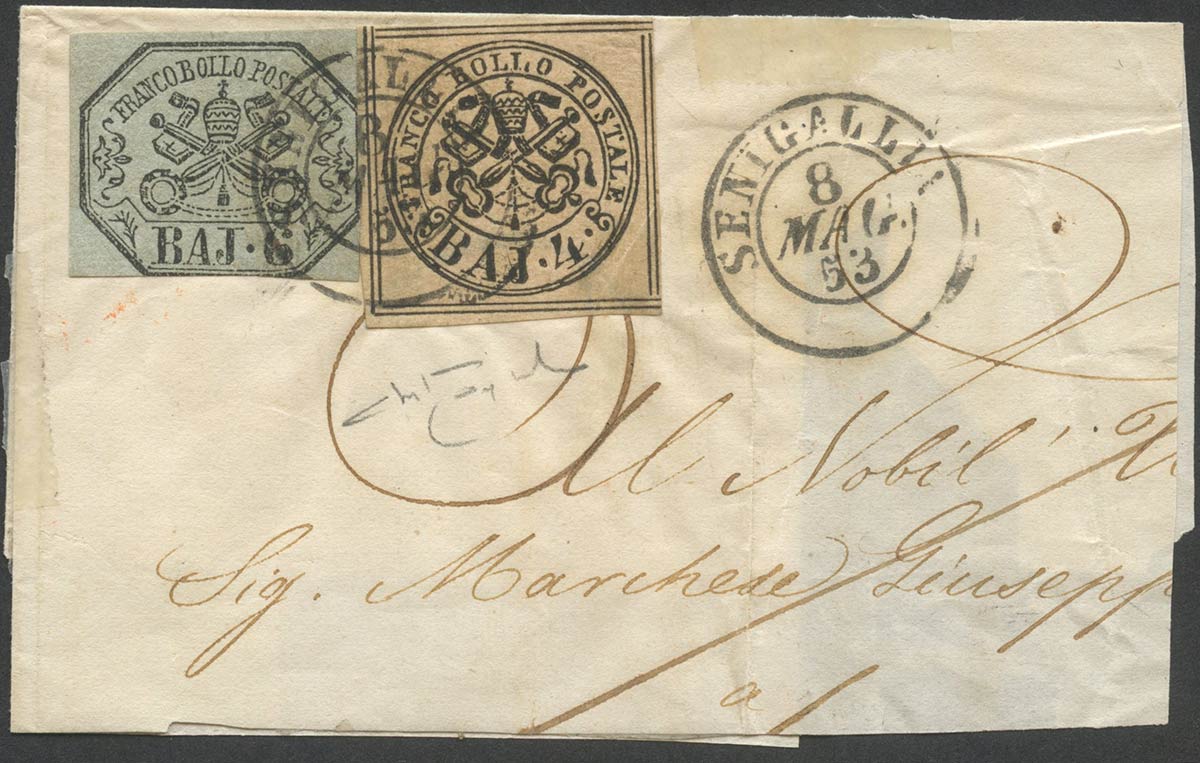 FRANCO BOLLO POSTALE
BAJ. 6
FRANCO BOLLO POSTALE
BAJ. 4.
SENIGALLI
8
MAG.
53
Al Nobil
Sig. Marchese Giusepp
a